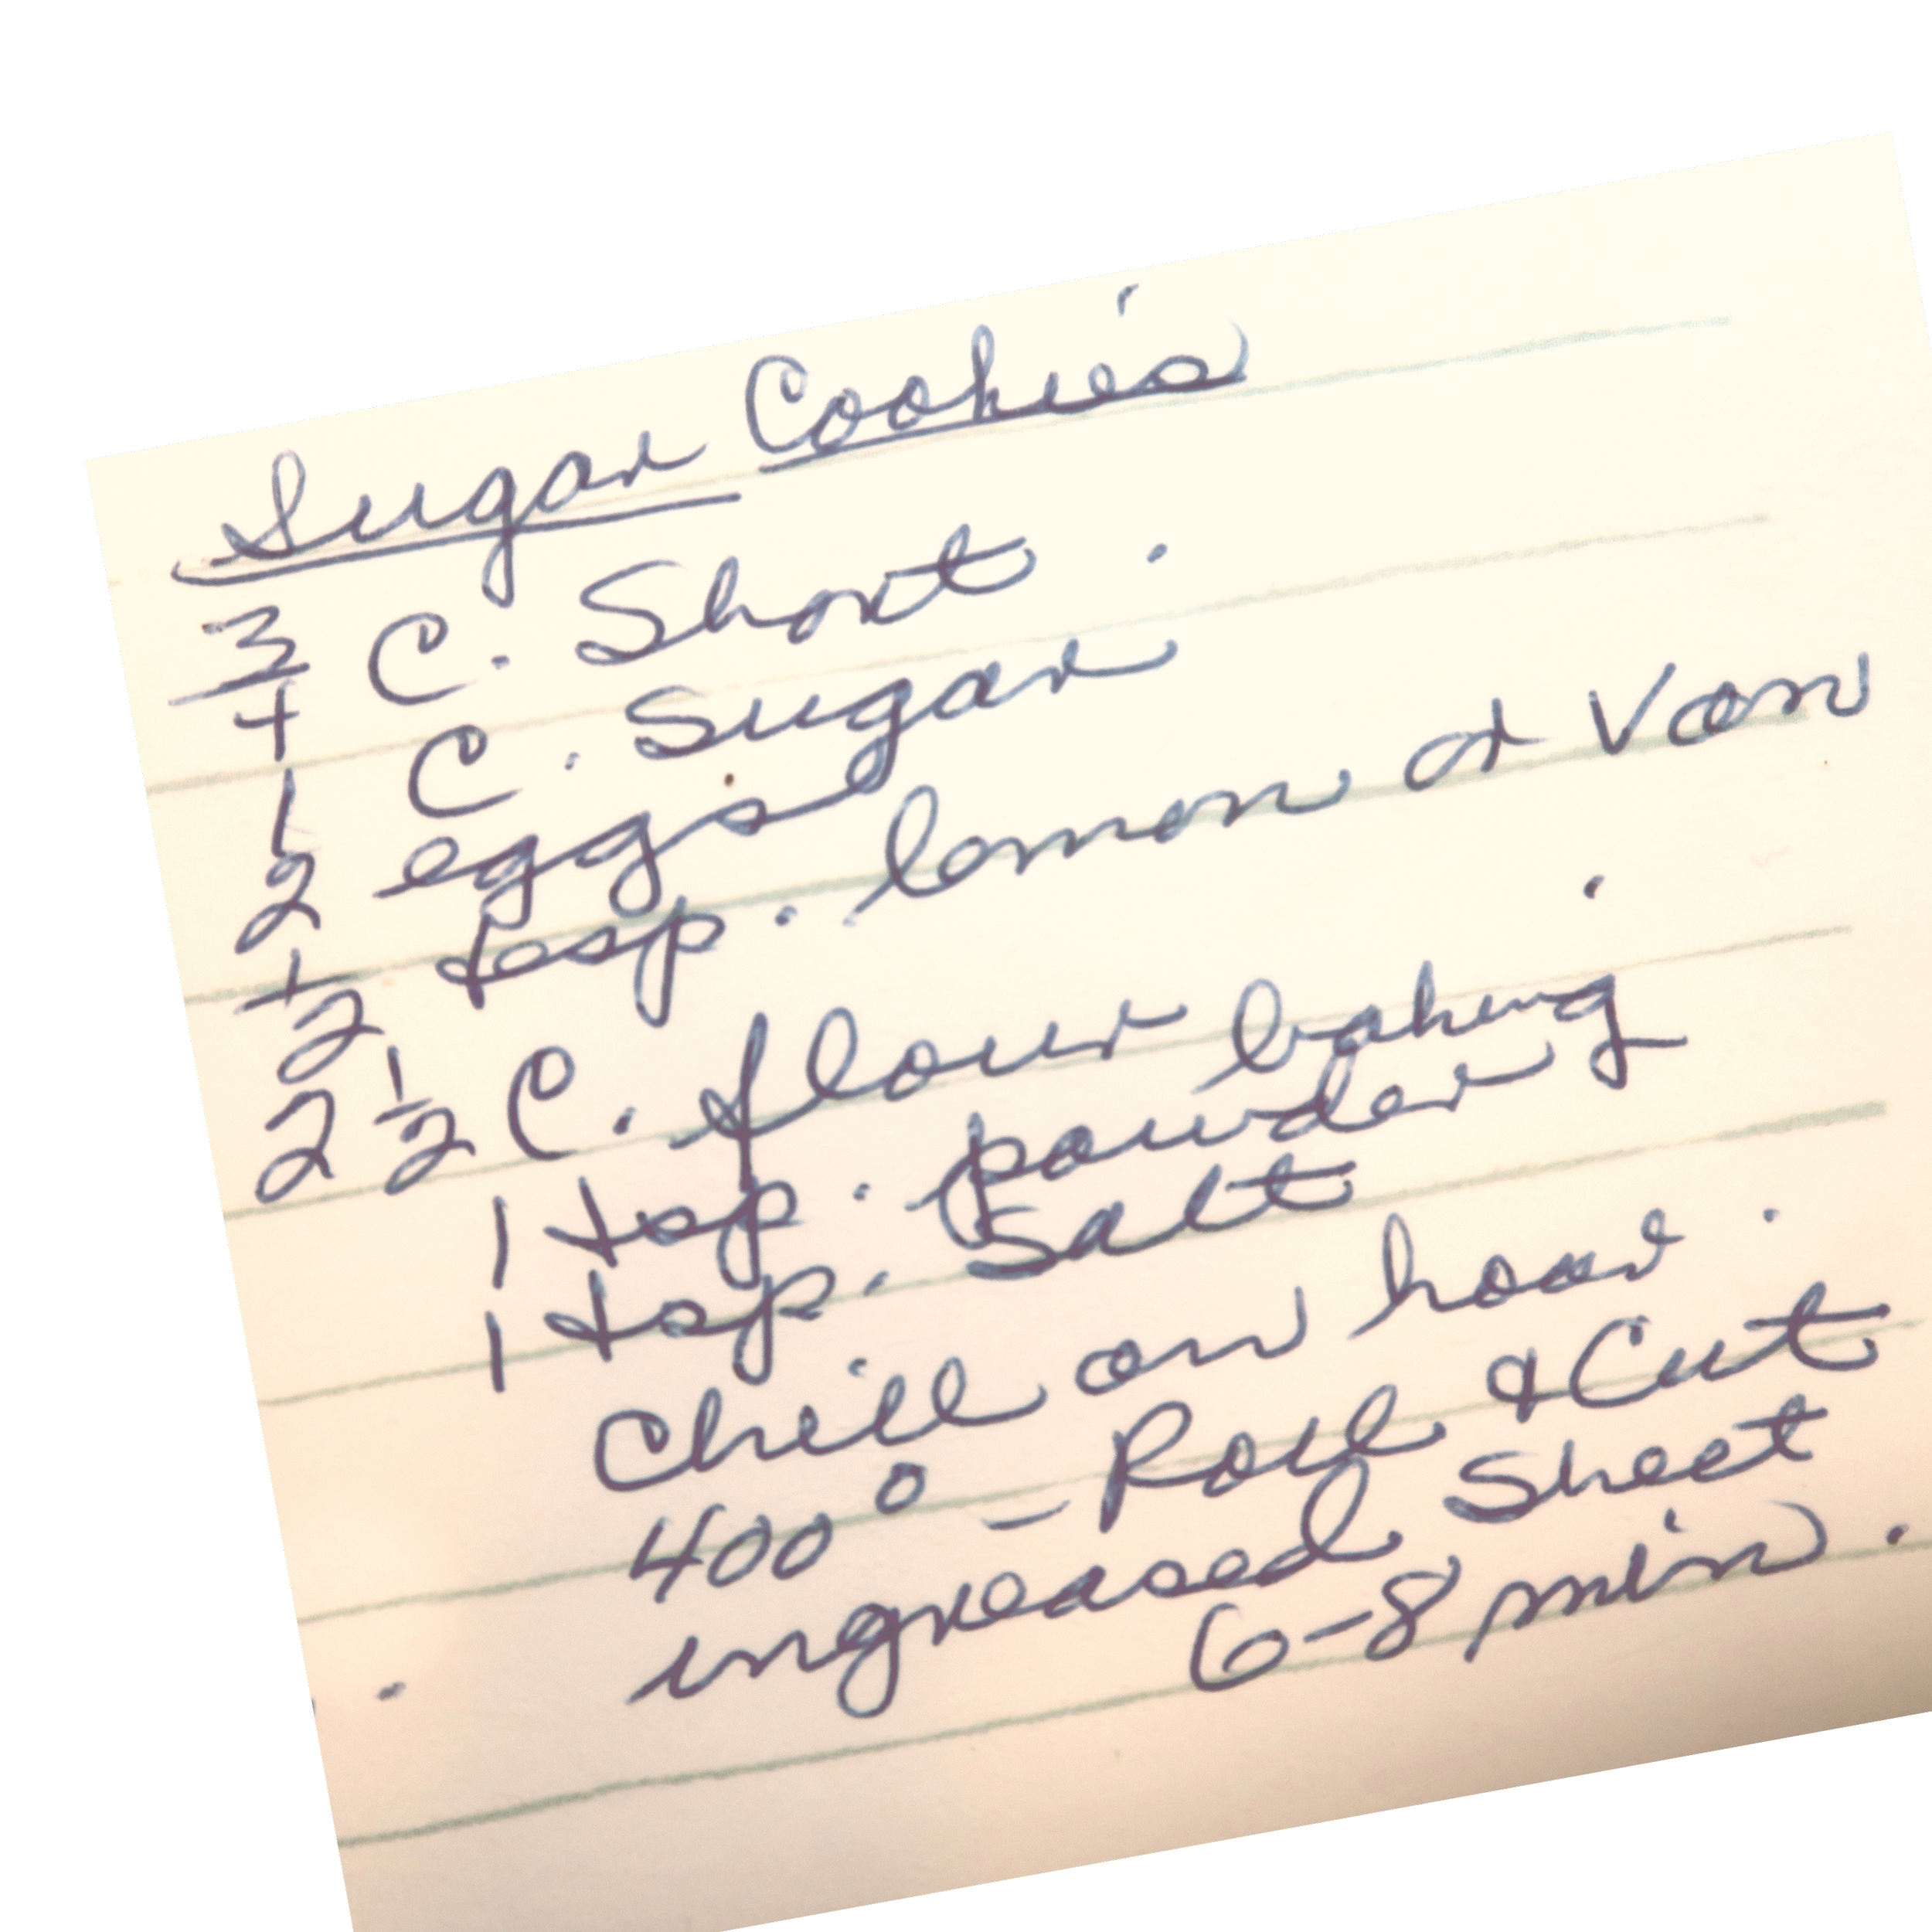 Sugar Cookies
3/4 C. Short.
1 C. Sugar
2 eggs
1/2 tesp. lemon or Van
2 1/2 C. flour
1 tsp. baking powder
1 tsp. Salt
Chill an hour.
400° - Roll & Cut
ungreased Sheet
6-8 min.